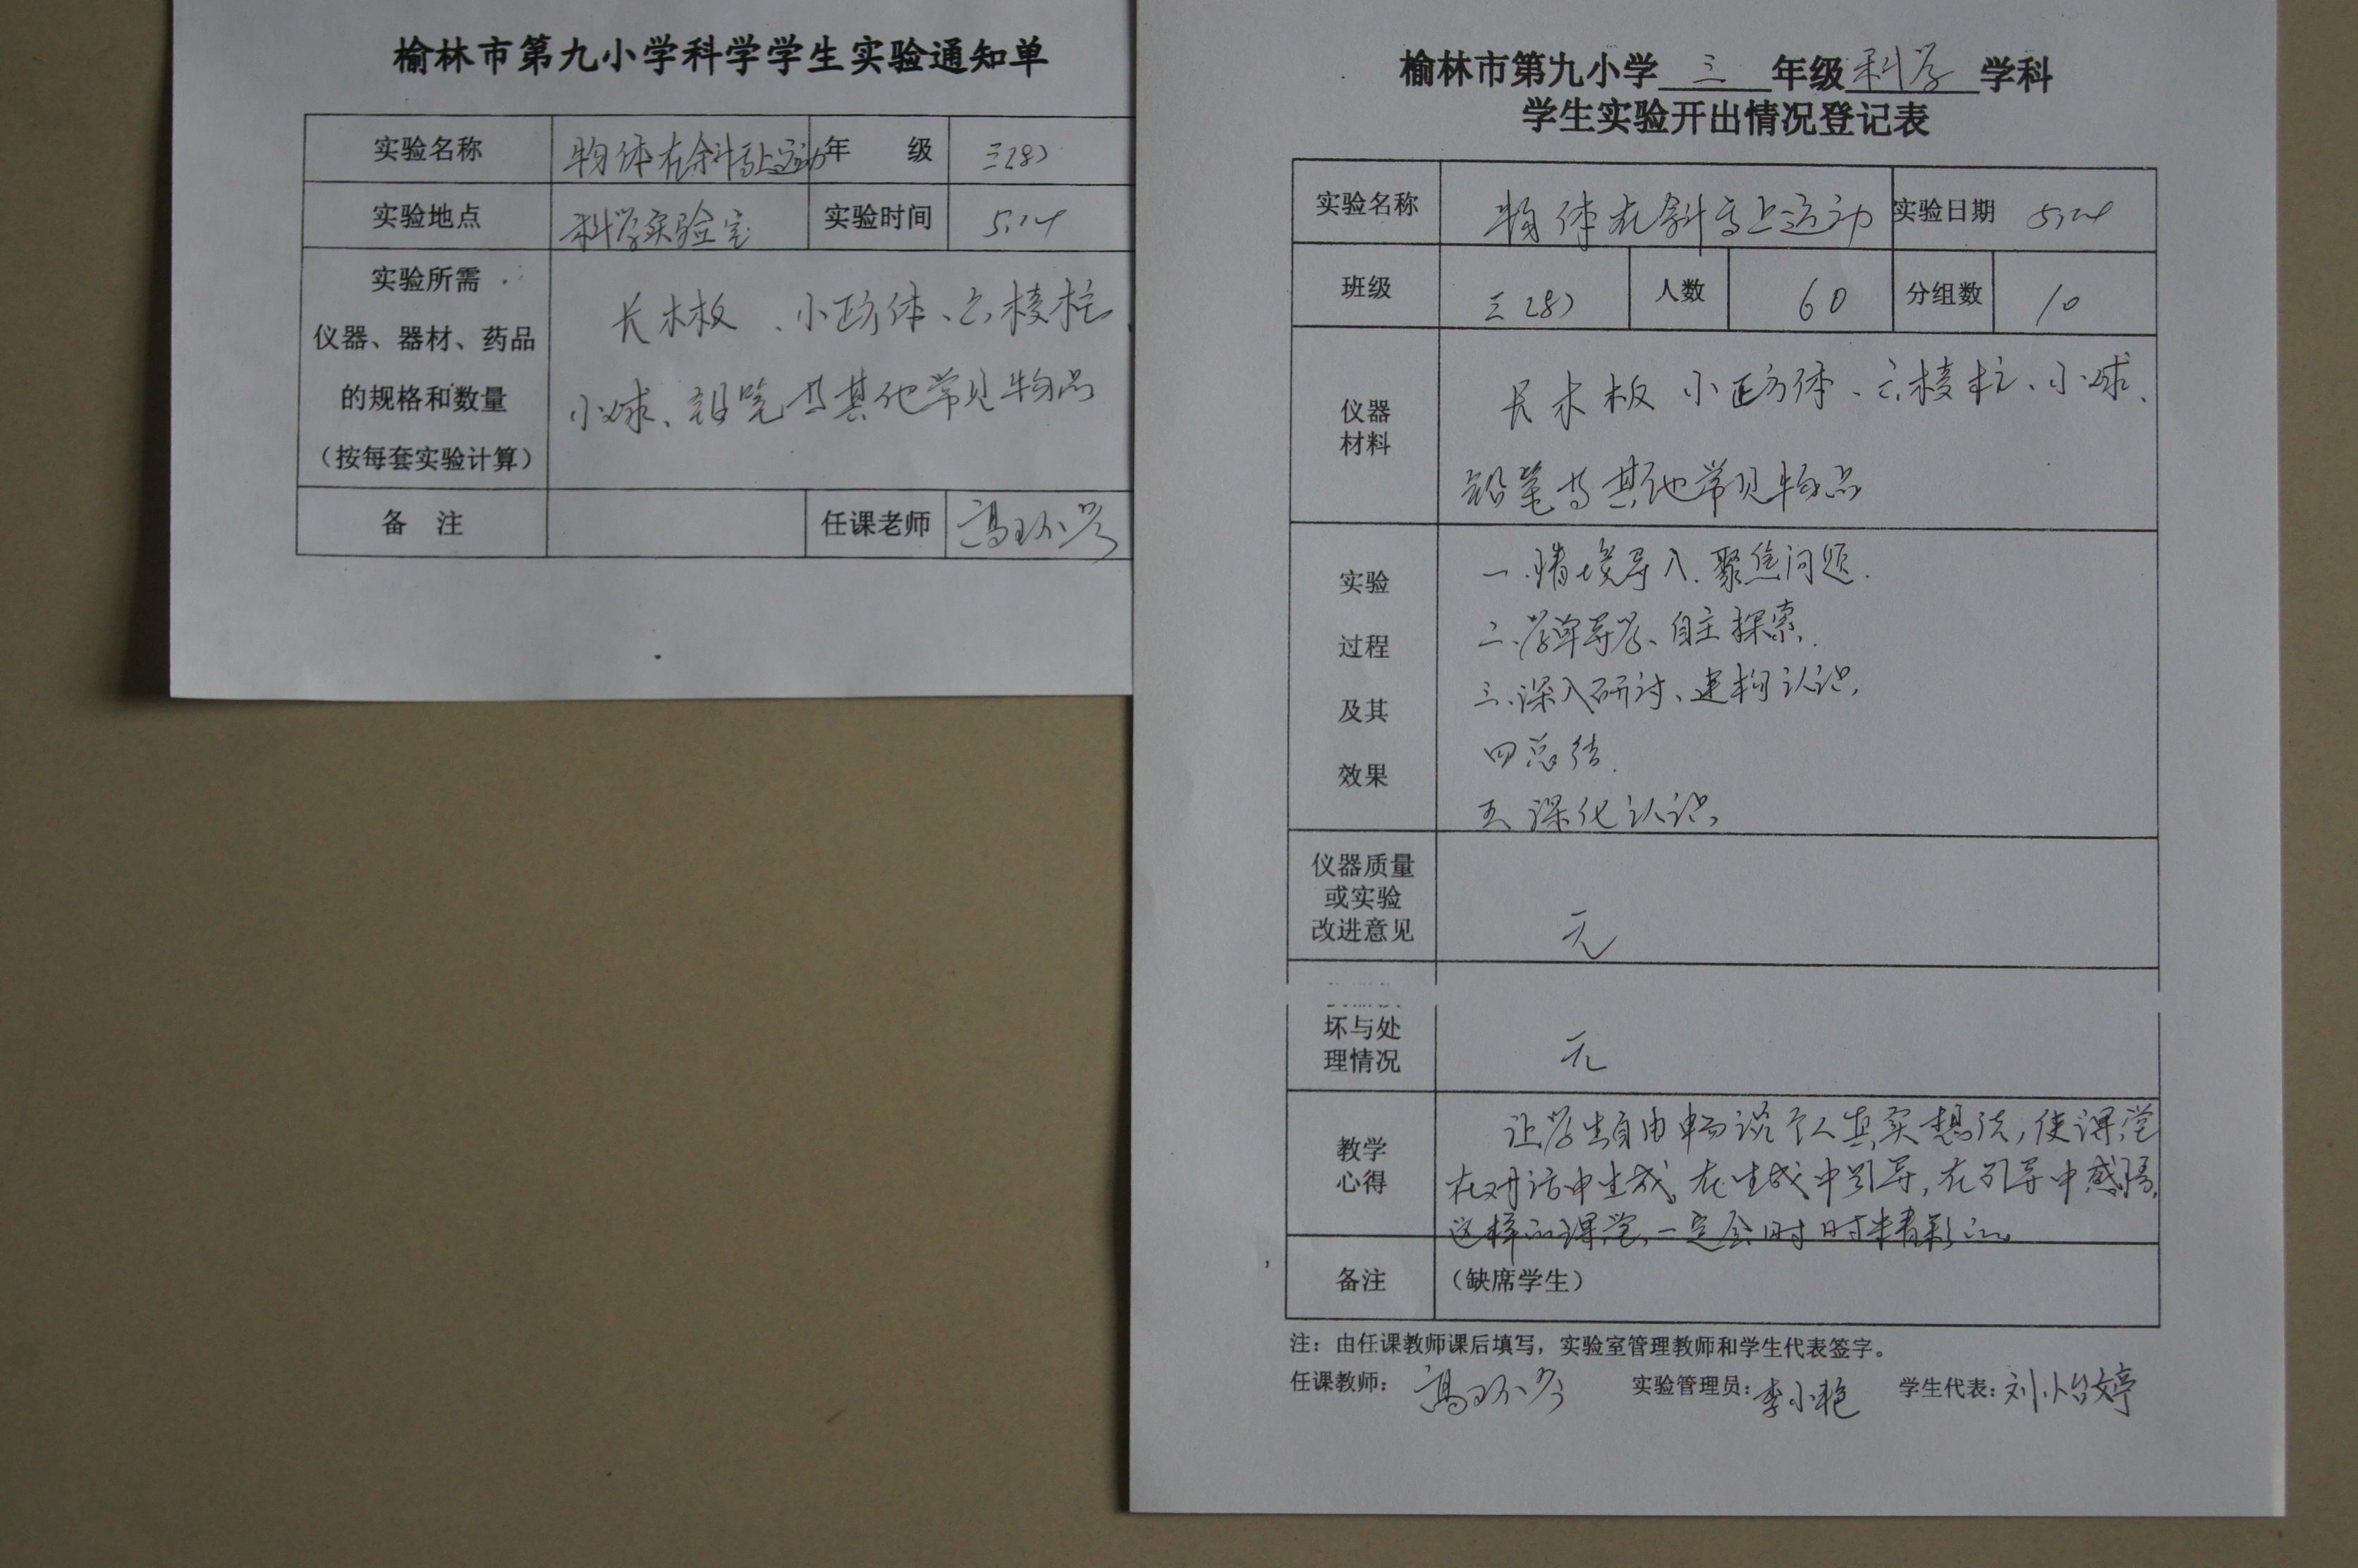 榆林市第九小学科学学生实验通知单
实验名称 物体在斜面上运动 年 级 三(8)
实验地点 科学实验室 实验时间 5.14
实验所需
仪器、器材、药品
的规格和数量
(按每套实验计算)
长木板、小正方体、六棱柱、
小球、铅笔与其他常见物品
备 注 任课老师 高
榆林市第九小学 三 年级 科学 学科
学生实验开出情况登记表
实验名称 物体在斜面上运动 实验日期
班级 三(8) 人数 60 分组数 10
仪器
材料
长木板 小正方体、六棱柱、小球、
铅笔与其他常见物品
实验
过程
及其
效果
一.情境导入.聚焦问题.
二、学单导学、自主探索.
三、深入研讨、建构认识.
四总结.
五、深化认识.
仪器质量
或实验
改进意见
无
坏与处
理情况
无
教学
心得
让学生自由畅谈个人真实想法,使课堂
在对话中生成,在生成中引导,在引导中感悟,
这样的课堂,一定会时时精彩的。
备注 (缺席学生)
注:由任课教师课后填写,实验室管理教师和学生代表签字。
任课教师: 高 实验管理员:李小艳 学生代表:刘怡婷